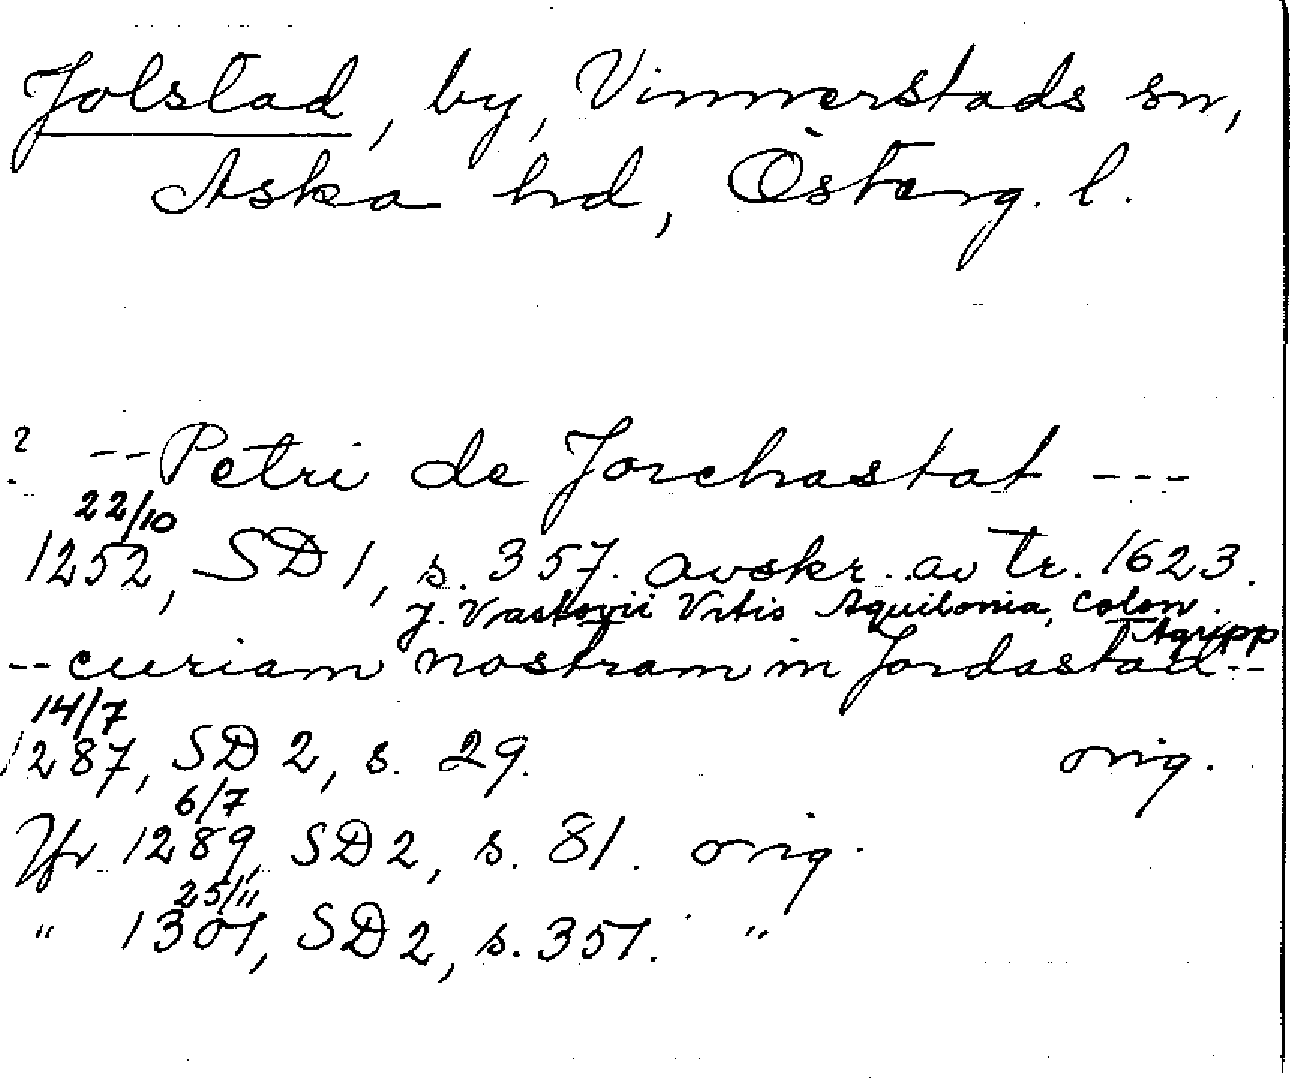 Jolstad, by, Vinnerstads sn,
Aska hd, Österg. l.
? -- Petri de Jorchastat ---
22/10
1252, SD 1, s. 357. avskr. av tr. 1623.
J. Vastovii Vitis Aquilonia, Colon.
Agripp
-- curiam nostram in Jordastad --
14/7
1287, SD 2, s. 29. orig.
6/7
Jfr 1289, SD 2, s. 81. orig.
25/11
" 1301, SD 2, s. 351. "